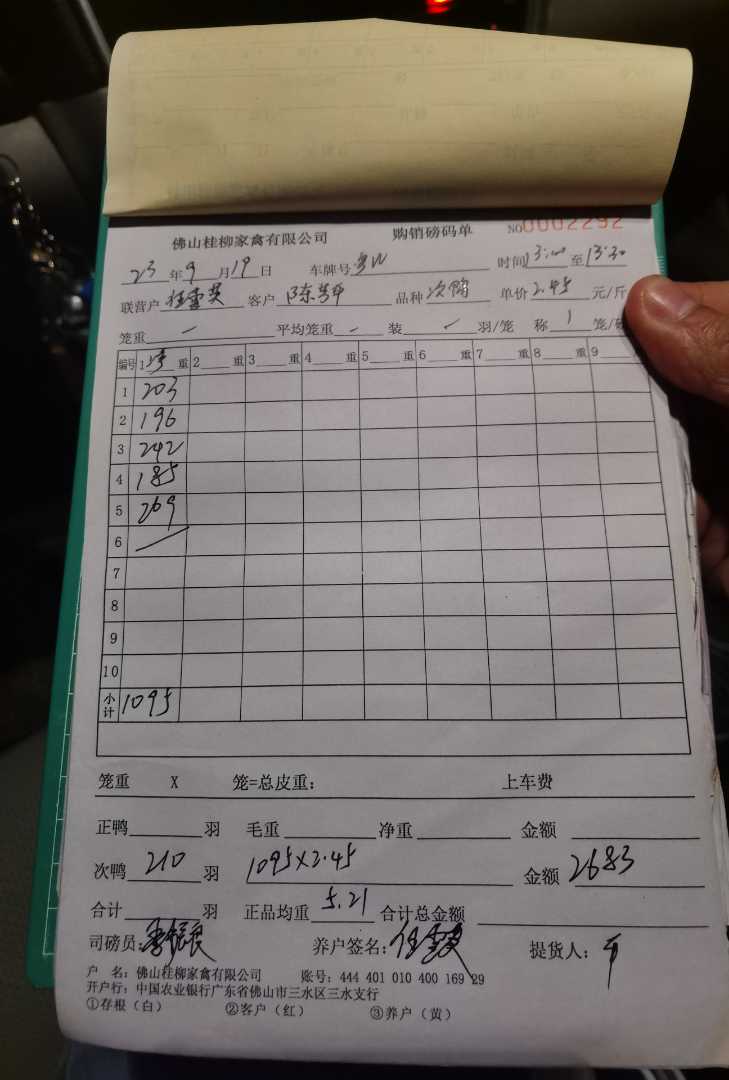 佛山桂柳家禽有限公司 购销磅码单 NO0002292
23年9月19日 车牌号粤W 时间13:00至13:30
联营户 客户 陈 品种次鸭 单价2.45元/斤
笼重 — 平均笼重 — 装 羽/笼 称1笼/
编号 1净重 2重 3重 4重 5重 6重 7重 8重 9
1 203
2 196
3 242
4 185
5 269
6
7
8
9
10
小计 1095
笼重 X 笼=总皮重: 上车费
正鸭 羽 毛重 净重 金额
次鸭 210 羽 1095×2.45 金额 2683
合计 羽 正品均重 5.21 合计总金额
司磅员: 养户签名: 提货人:
户 名:佛山桂柳家禽有限公司 账号:444 401 010 400 169 29
开户行:中国农业银行广东省佛山市三水区三水支行
①存根(白) ②客户(红) ③养户(黄)